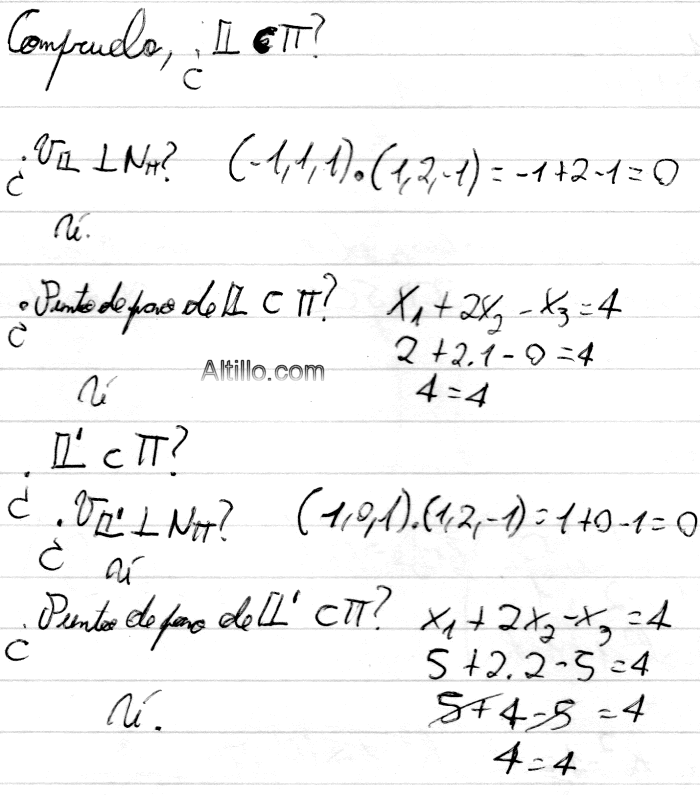 Compruebo, ¿ 𝕃 ⊂ π?
¿V𝕃 ⊥ Nπ? (-1,1,1).(1,2,-1) = -1+2-1=0
Sí.
¿Punto de paso de 𝕃 ⊂ π? X₁ + 2X₂ - X₃ = 4
2 + 2.1 - 0 = 4
Altillo.com
Sí 4 = 4
¿𝕃' ⊂ π?
¿V𝕃' ⊥ Nπ? (1,0,1).(1,2,-1) = 1+0-1=0
Sí
¿Punto de paso de 𝕃' ⊂ π? X₁ + 2X₂ - X₃ = 4
5 + 2.2 - 5 = 4
Sí. 5 + 4 - 5 = 4
4 = 4